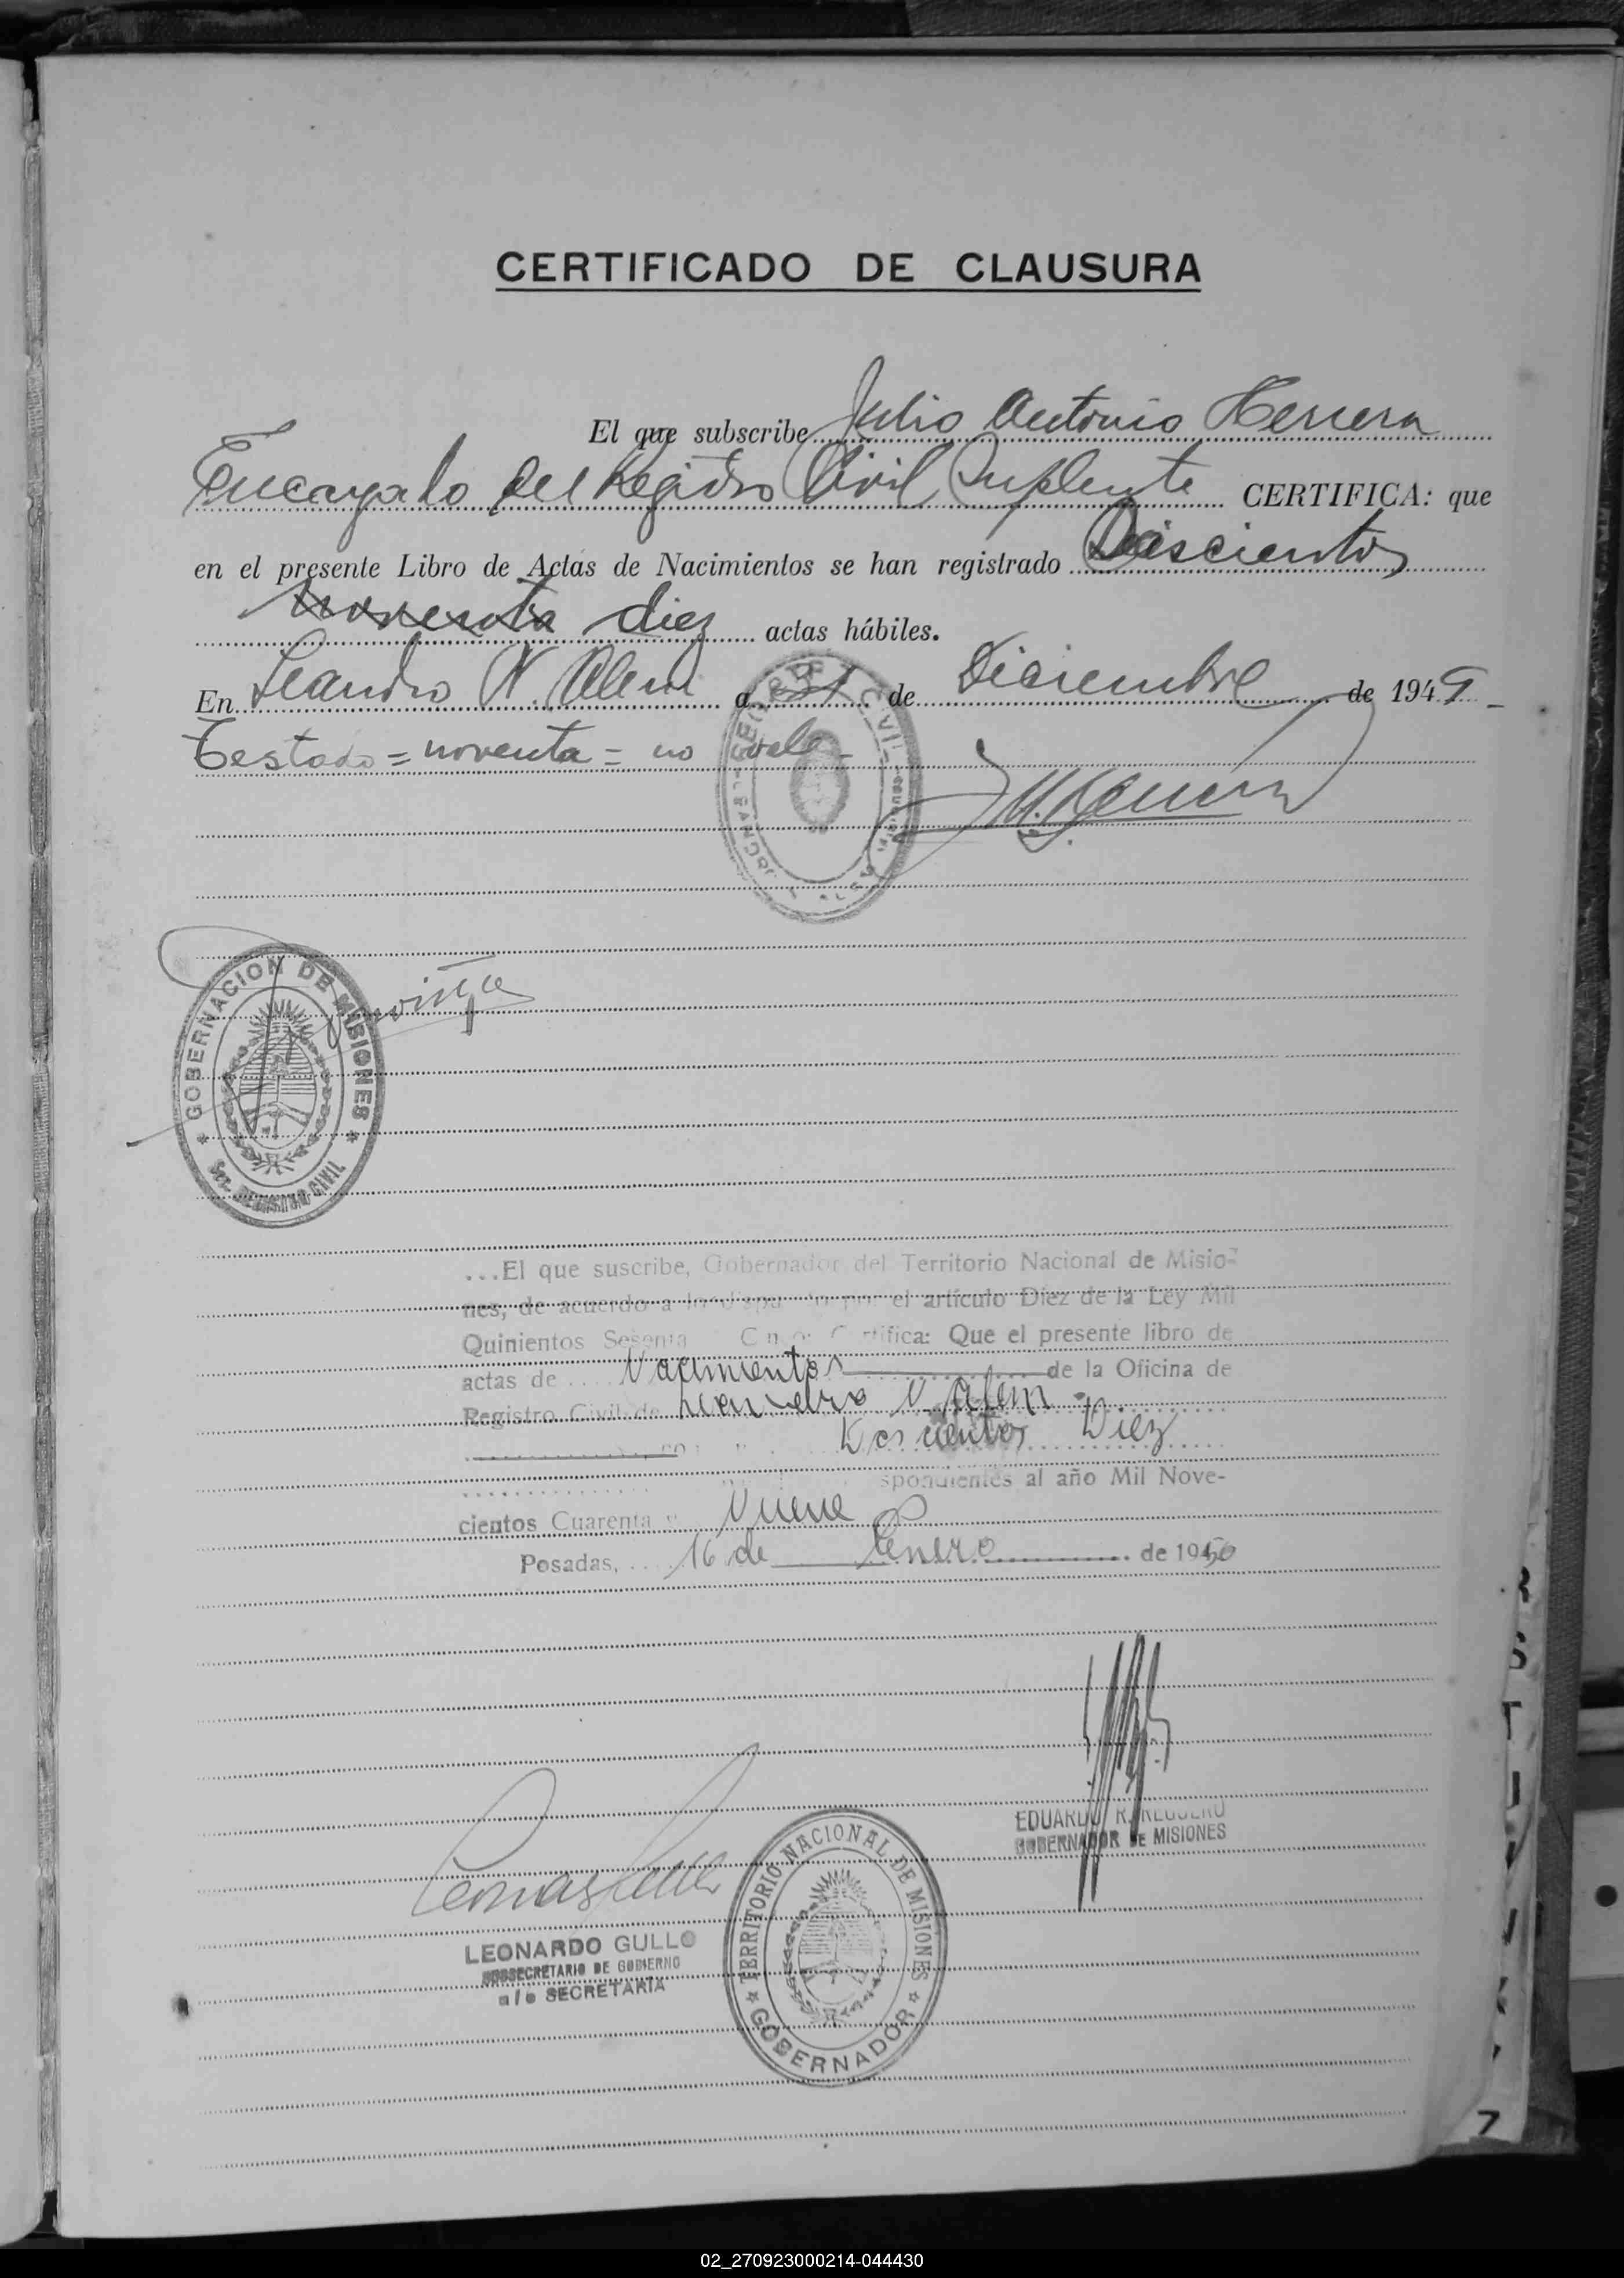 CERTIFICADO DE CLAUSURA
El que subscribe Julio Antonio Herrera
Encargado del Registro Civil Suplente CERTIFICA: que
en el presente Libro de Actas de Nacimientos se han registrado Doscientos
noventa diez actas hábiles.
En Leandro N. Alem a 31 de Diciembre de 1949
Testado = noventa = no vale
GOBERNACION DE MISIONES
REGISTRO CIVIL
...El que suscribe, Gobernador del Territorio Nacional de Misio-
nes, de acuerdo a lo por el artículo Diez de la Ley Mil
Quinientos Sesenta Certifica: Que el presente libro de
actas de Nacimientos de la Oficina de
Registro Civil de Leandro N. Alem
Doscientos Diez
al año Mil Nove-
cientos Cuarenta y Nueve
Posadas, 16 de Enero de 1950
EDUARDO R.
GOBERNADOR DE MISIONES
TERRITORIO NACIONAL DE MISIONES
GOBERNADOR
LEONARDO GULLO
SUBSECRETARIO DE GOBIERNO
a/c SECRETARIA
7
02_270923000214-044430